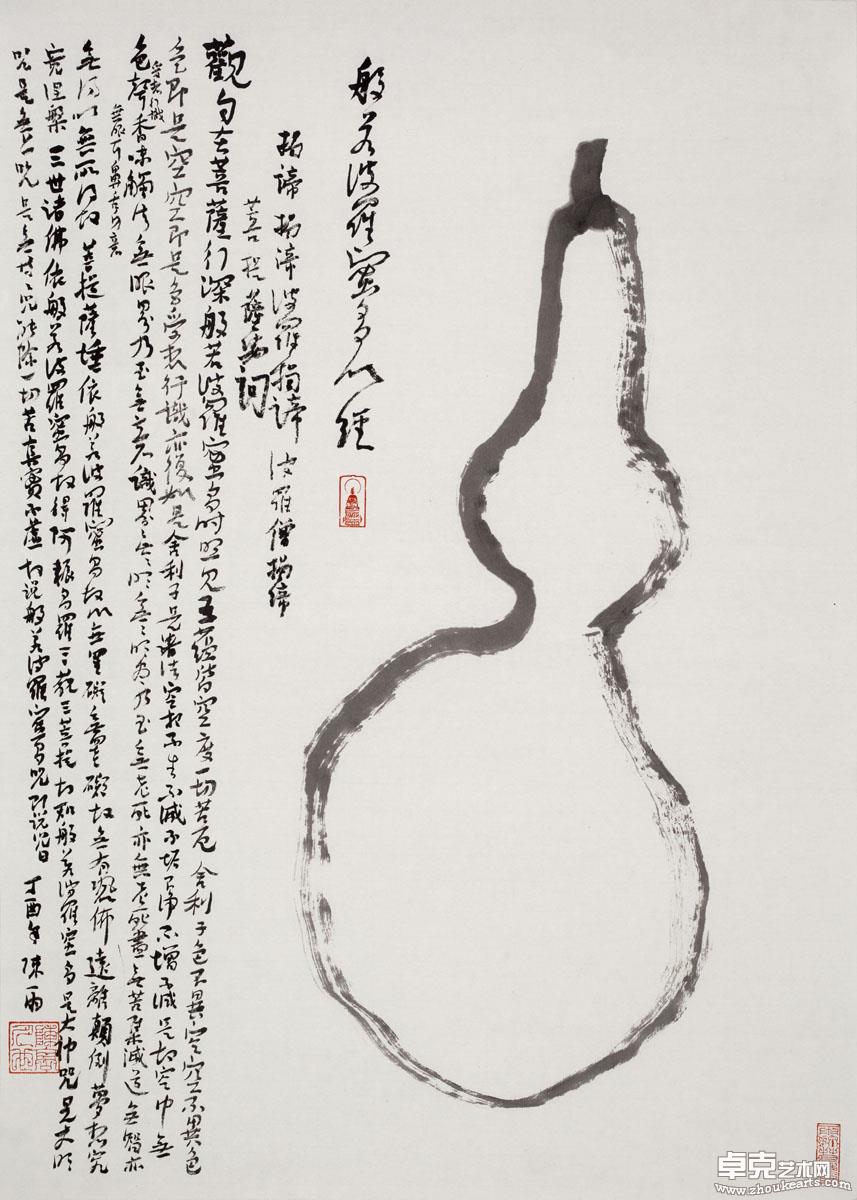 般若波羅蜜多心經
揭諦揭諦波羅揭諦 波羅僧揭諦
菩提薩婆訶
觀自在菩薩行深般若波羅蜜多時照見五蘊皆空度一切苦厄 舍利子色不異空空不異色
色即是空空即是色受想行識亦復如是舍利子是諸法空相不生不滅不垢不净不增不減是故空中無
受想行識
色聲香味觸法無眼界乃至無意識界無無明無無明盡乃至無老死亦無老死盡無苦集滅道無智亦
無眼耳鼻舌身意
無得以無所得故 菩提薩埵依般若波羅蜜多故心無罣礙無罣礙故無有恐怖 遠離顛倒夢想究
竟涅槃 三世諸佛依般若波羅蜜多故得阿耨多羅三藐三菩提故知般若波羅蜜多是大神咒是大明
咒是無上咒是無等等咒能除一切苦真實不虛故説般若波羅蜜多咒即説咒曰 丁酉年 陳雨
卓克艺术网
www.zhoukearts.com